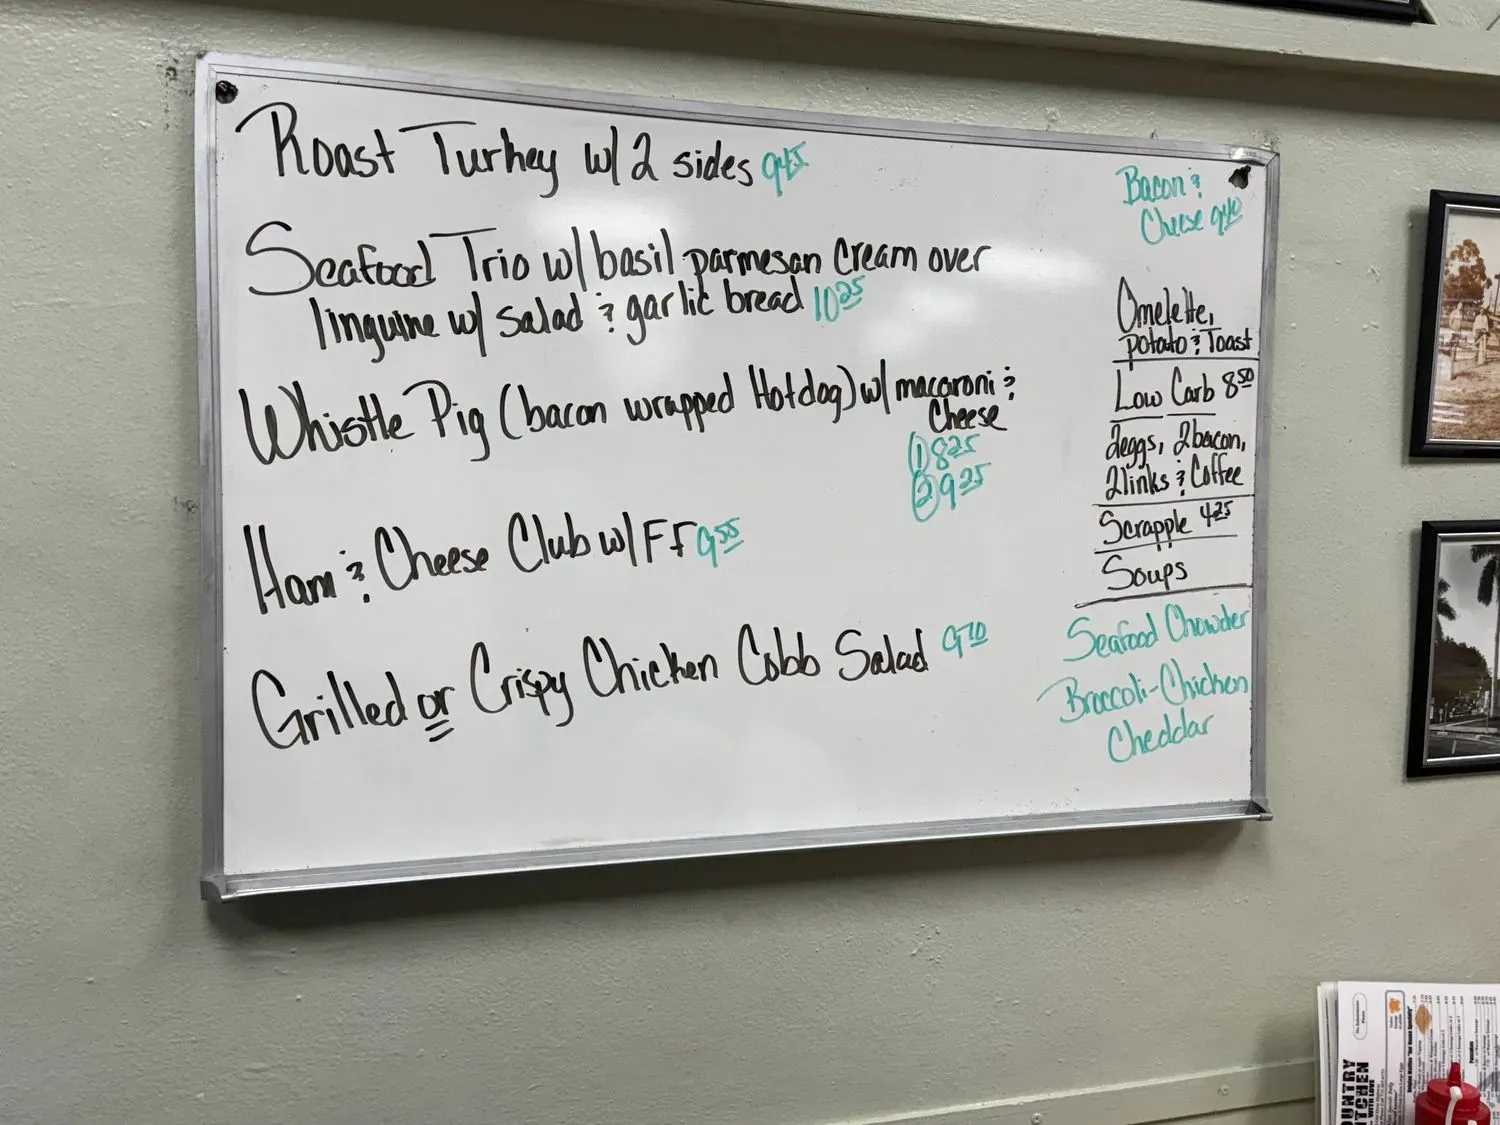 Roast Turkey w/ 2 sides 9.45
Seafood Trio w/ basil parmesan cream over
linguine w/ salad & garlic bread 10.25
Whistle Pig (bacon wrapped Hotdog) w/ macaroni &
Cheese
① 8.25
② 9.25
Ham & Cheese Club w/ FF 9.55
Grilled or Crispy Chicken Cobb Salad 9.70
Bacon &
Cheese 9.40
Omelette,
potato & Toast
Low Carb 8.50
2eggs, 2bacon,
2links & Coffee
Scrapple 4.25
Soups
Seafood Chowder
Broccoli-Chicken
Cheddar